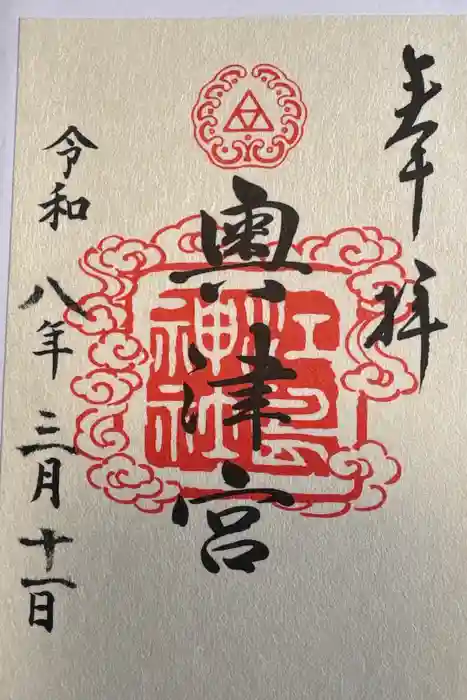 奉拝
奥津宮
江島
神社
令和八年三月十一日